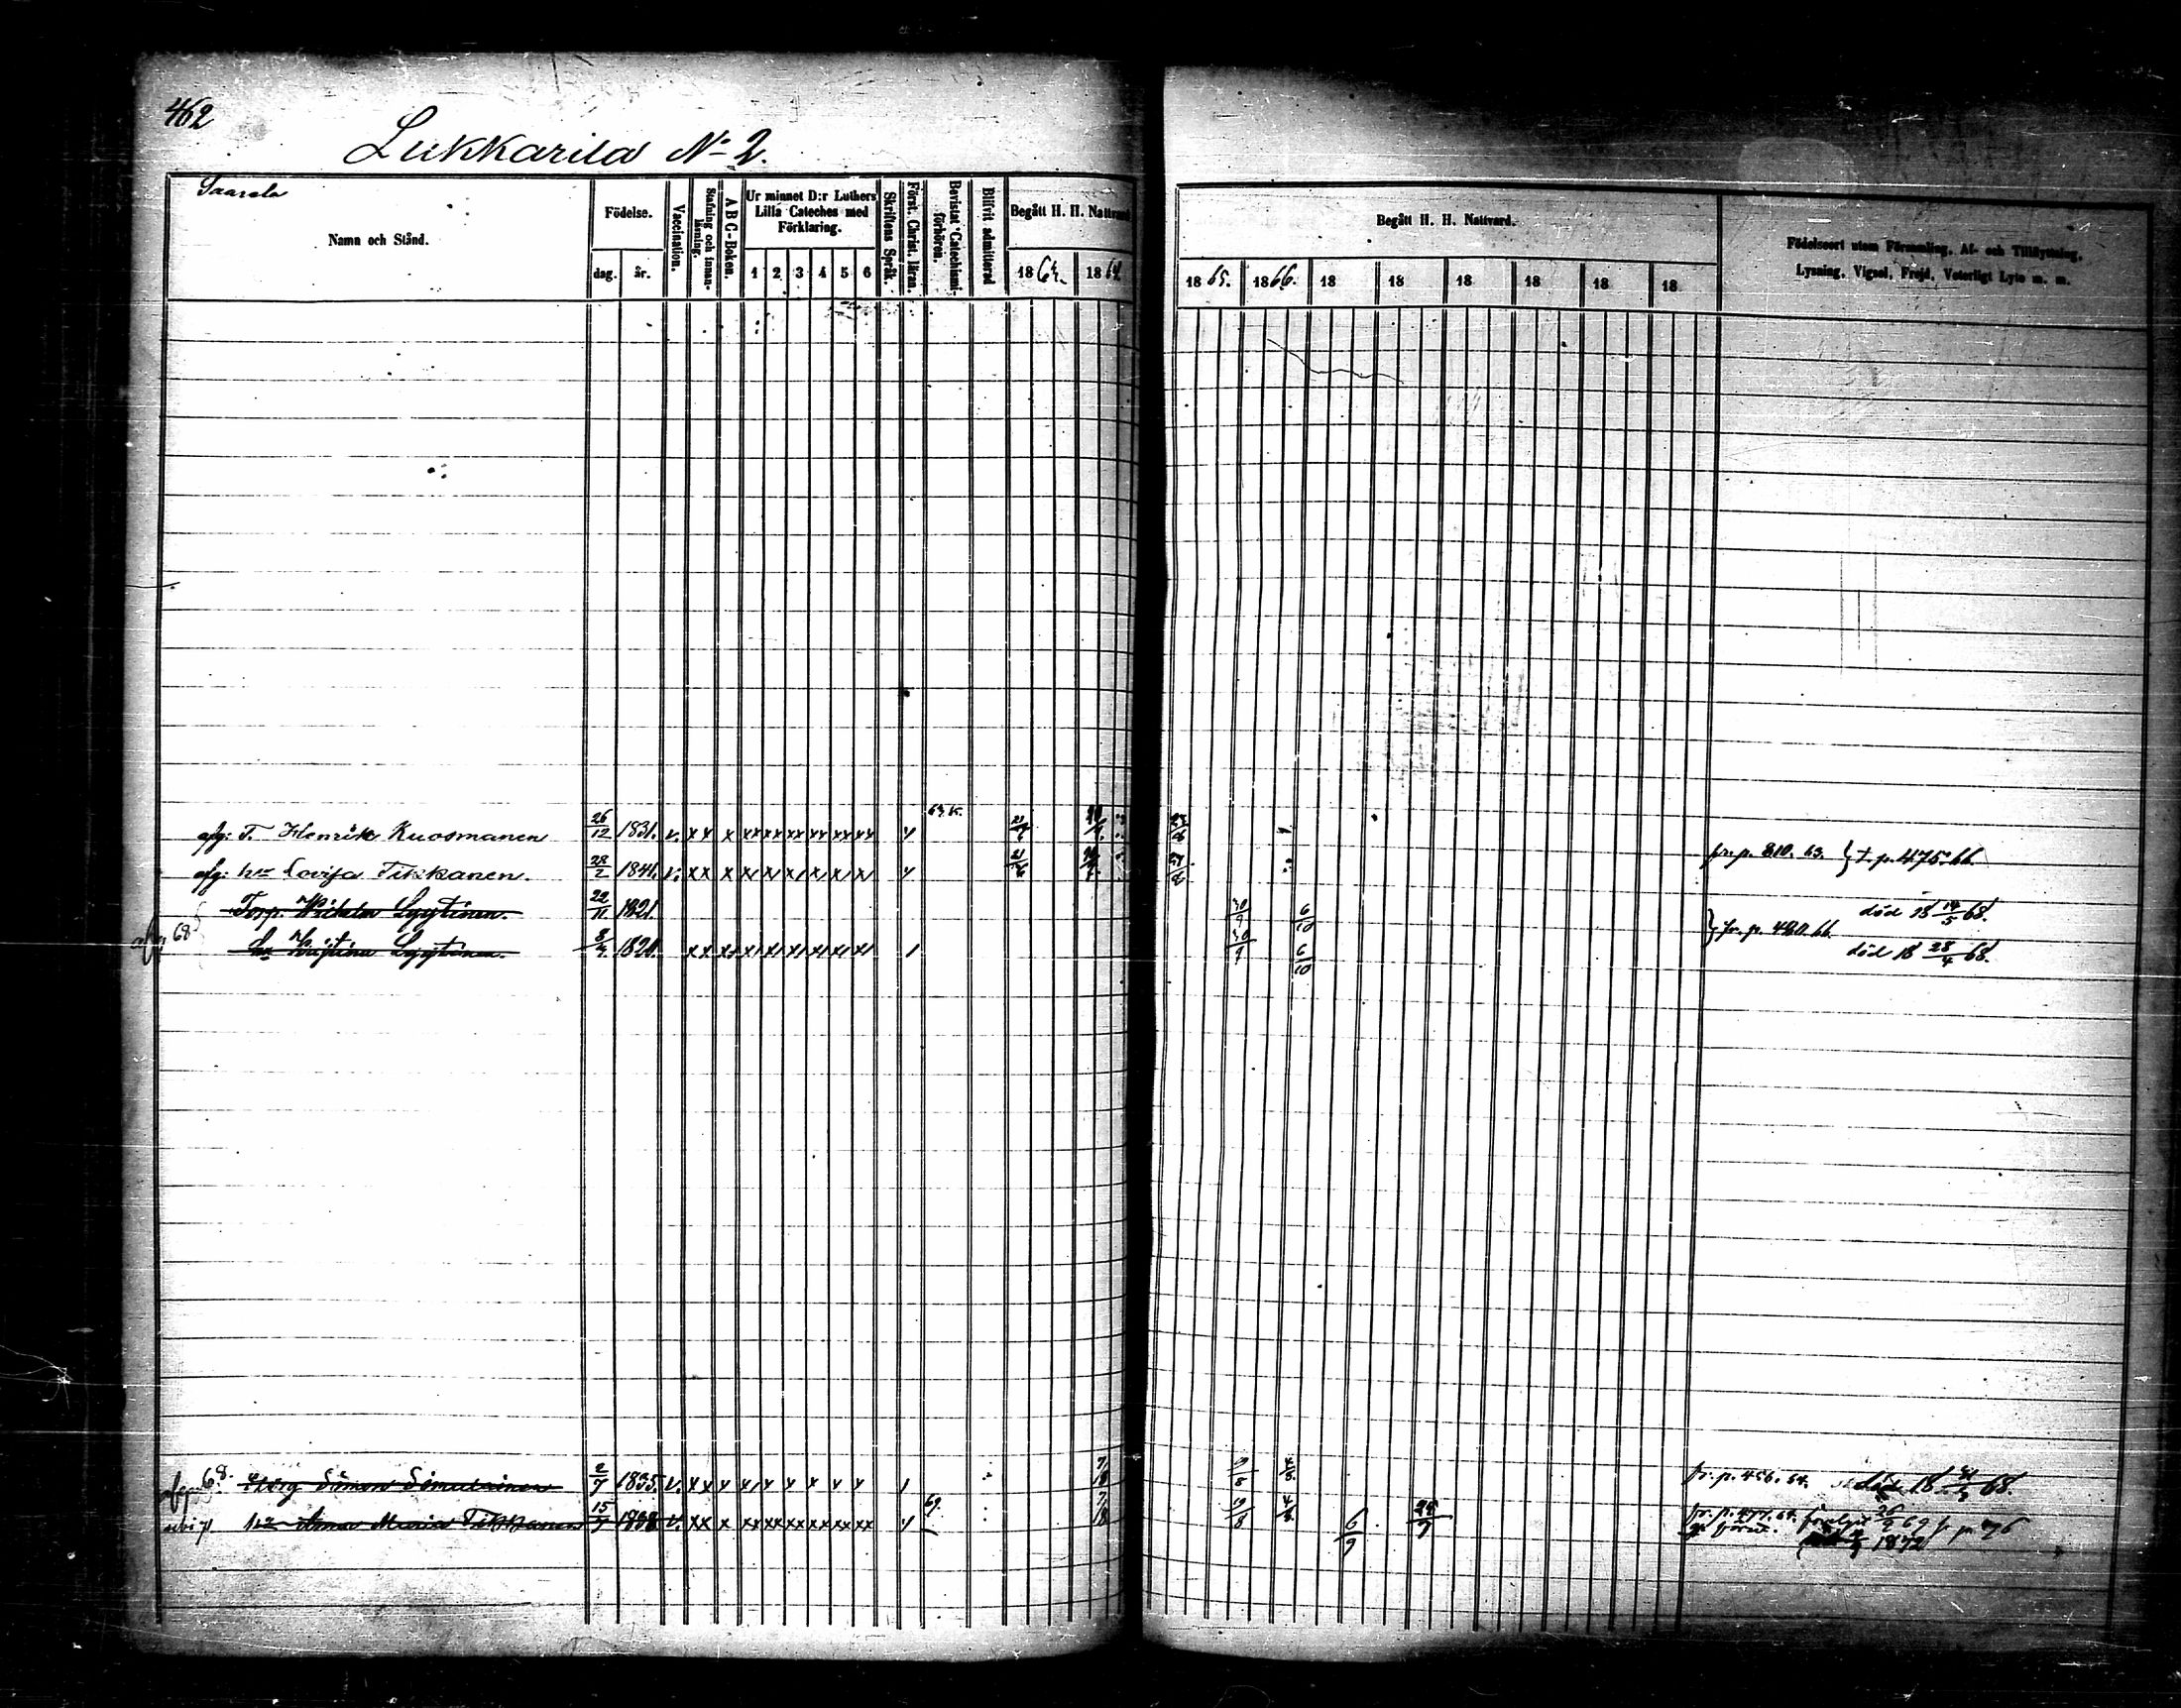 462
Lukkarila No 2.
Saarela
Namn och Stånd.
Födelse.
dag. år.
Vaccination.
Stafning och innanläsning.
A B C-Boken.
Ur minnet D:r Luthers Lilla Cateches med Förklaring.
1 2 3 4 5 6
Skriftens Språk.
Först. Christ. läran.
Bevistat Catechismi-förhören.
Blifvit admitterad
Begått H. H. Nattvard
1863. 1864
Begått H. H. Nattvard.
1865. 1866. 18 18 18 18 18 18
Födelseort utom Församling, Af- och Tillflyttning, Lysning, Vigsel, Frejd, Veterligt Lyte m. m.
afg: T. Henrik Kuosmanen 26/12 1831. v. x x x xx xx xx xx xx xx 63 K.
afg: hu Lovisa Tikkanen. 28/2 1841. v. x x x x x x x x x fr. p. 810. 63. } t. p. 475. 66.
Torp. Wilhelm Lyytinen. 22/11 1821. 30/9 6/10 död 18 14/5 68.
68 hu Kristina Lyytinen. 8/4 1820. x x x x x x x x x 30/9 6/10 } fr. p. 480. 66. död 18 28/4 68.
68. Simon Simulainen 2/7 1835. v. x x x x x x x x x 19/8 fr. p. 456. 64. död 18 68.
hu Anna Maria Tikkanen 15/7 1838 v. x x x xx xx xx xx xx xx 69 19/8 6/9 fr. p. 477. 64. 26/2 69
1872